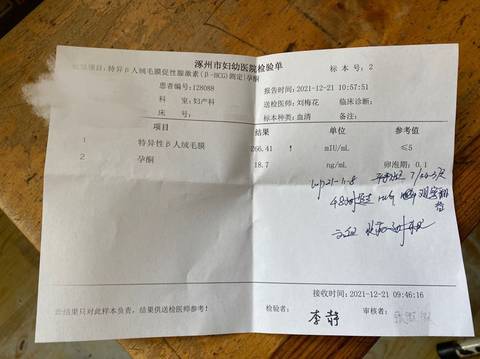 涿州市妇幼医院检验单
项目:特异β人绒毛膜促性腺激素(β-HCG)测定|孕酮
标 本 号: 2
患者编号:128088
报告时间:2021-12-21 10:57:51
科 室:妇产科
送检医师:刘梅花
临床诊断:
床 号:
标本种类:血清
备注:
项目 结果 单位 参考值
1 特异性β人绒毛膜 66.41 ↑ mIU/mL ≤5
2 孕酮 18.7 ng/mL 卵泡期: 0.1
48小时
接收时间:2021-12-21 09:46:16
结果只对此样本负责,结果供送检医师参考!
检验者: 李静
审核者: